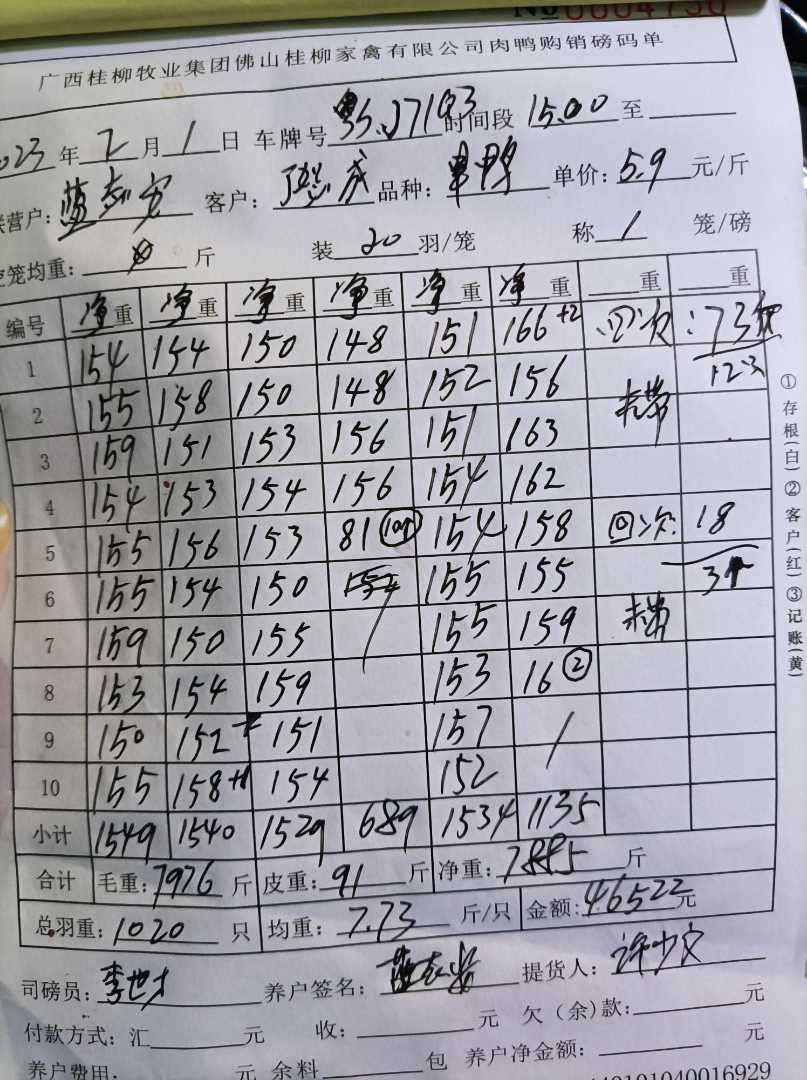 No 0004736
广西桂柳牧业集团佛山桂柳家禽有限公司肉鸭购销磅码单
2023 年 2 月 1 日 车牌号 时间段 15:00 至
联营户: 客户: 品种: 单价: 5.9 元/斤
空笼均重: 0 斤 装 20 羽/笼 称 1 笼/磅
编号 净重 净重 净重 净重 净重 净重 重 重
1 154 154 150 148 151 166+2 次: 73
2 155 158 150 148 152 156 123
3 159 151 153 156 151 163
4 154 153 154 156 154 162
5 155 156 153 81 154 158 回次: 18
6 155 154 150 155 155 3个
7 159 150 155 155 159
8 153 154 159 153 16 ②
9 150 152 151 157
10 155 158+1 154 152
小计 1549 1540 1529 689 1534 1135
合计 毛重: 7976 斤 皮重: 91 斤 净重: 7885 斤
总羽重: 1020 只 均重: 7.73 斤/只 金额: 46522 元
司磅员: 李世才 养户签名: 提货人: 许少文
付款方式: 汇 元 收: 元 欠(余)款: 元
养户费用: 元 余料 包 养户净金额: 元
①存根(白)②客户(红)③记账(黄)